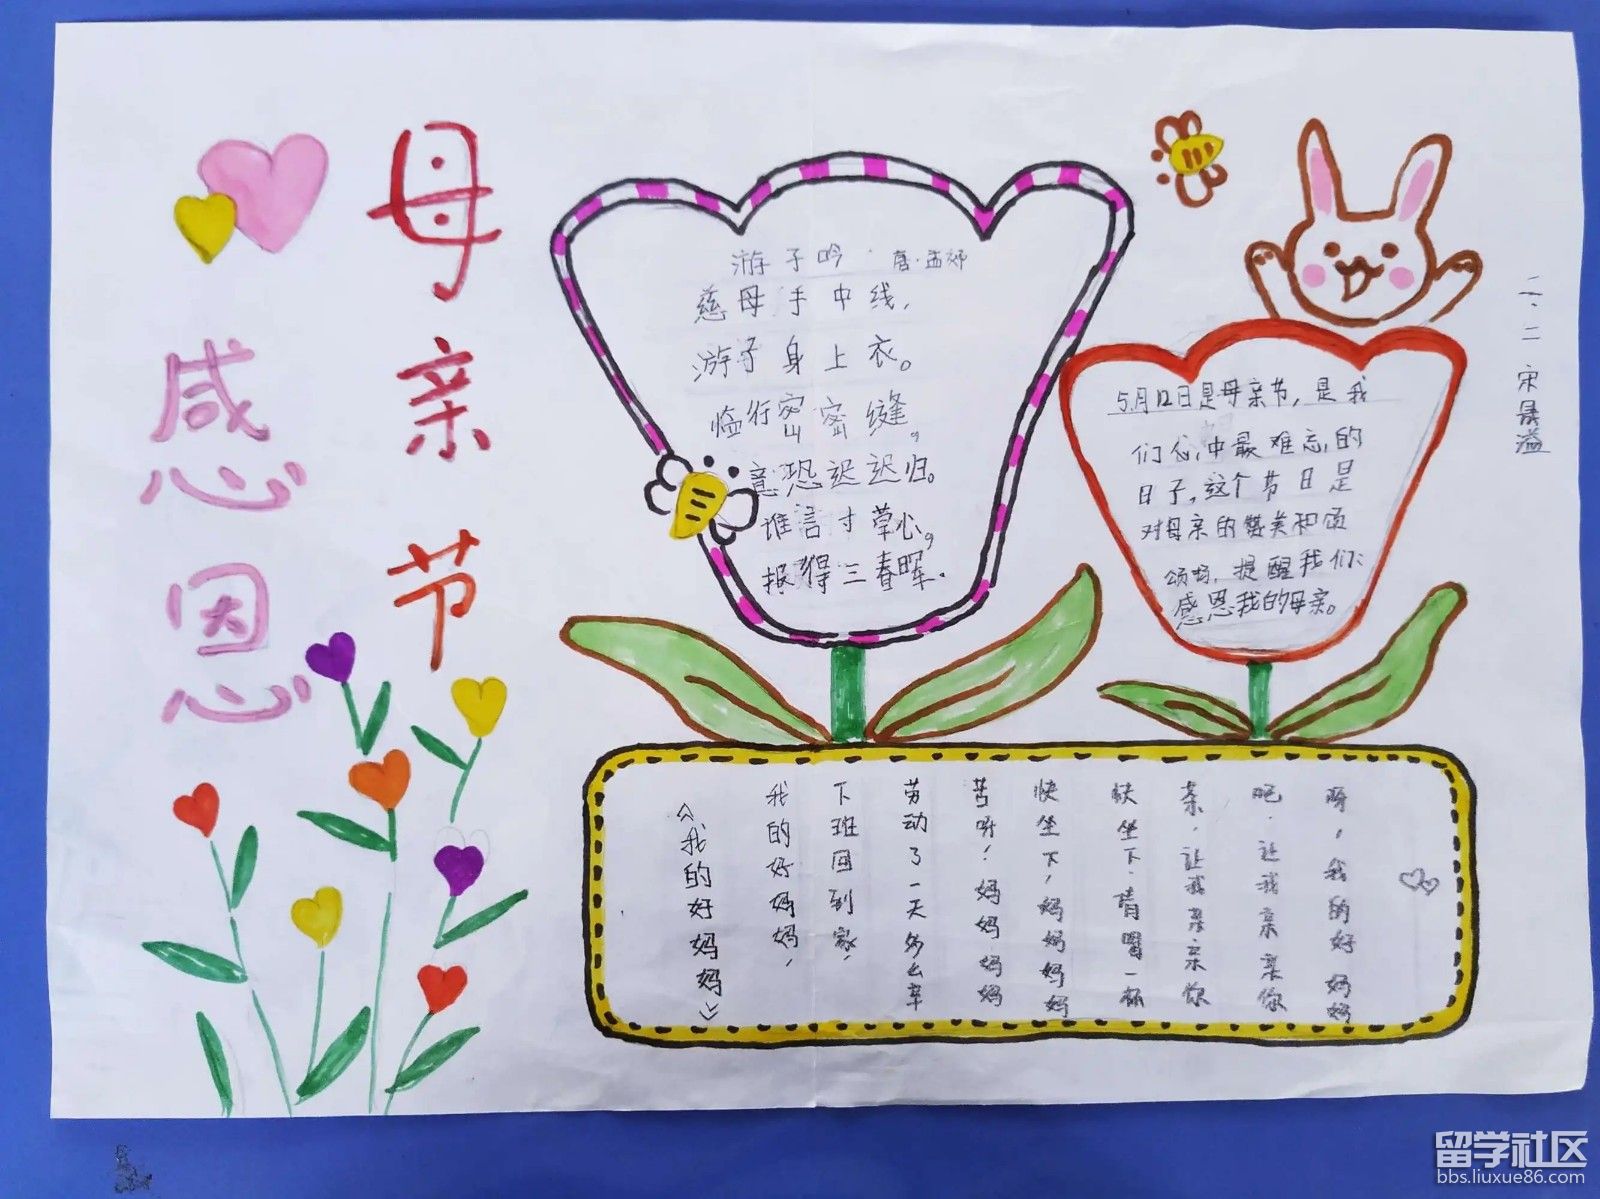 母亲节
感恩
游子吟·唐·孟郊
慈母手中线，
游子身上衣。
临行密密缝，
意恐迟迟归。
谁言寸草心，
报得三春晖.
5月12日是母亲节，是我
们心中最难忘的
日子，这个节日是
对母亲的赞美和颂
颂扬，提醒我们：
感恩我的母亲。
二.二 宋晟溢
《我的好妈妈》
我的好妈妈，
下班回到家，
劳动了一天多么辛
苦呀！妈妈妈妈
快坐下！妈妈妈妈
快坐下，请喝一杯
茶，让我亲亲你
吧，让我亲亲你
呀，我的好妈妈
留学社区
bbs.liuxue86.com